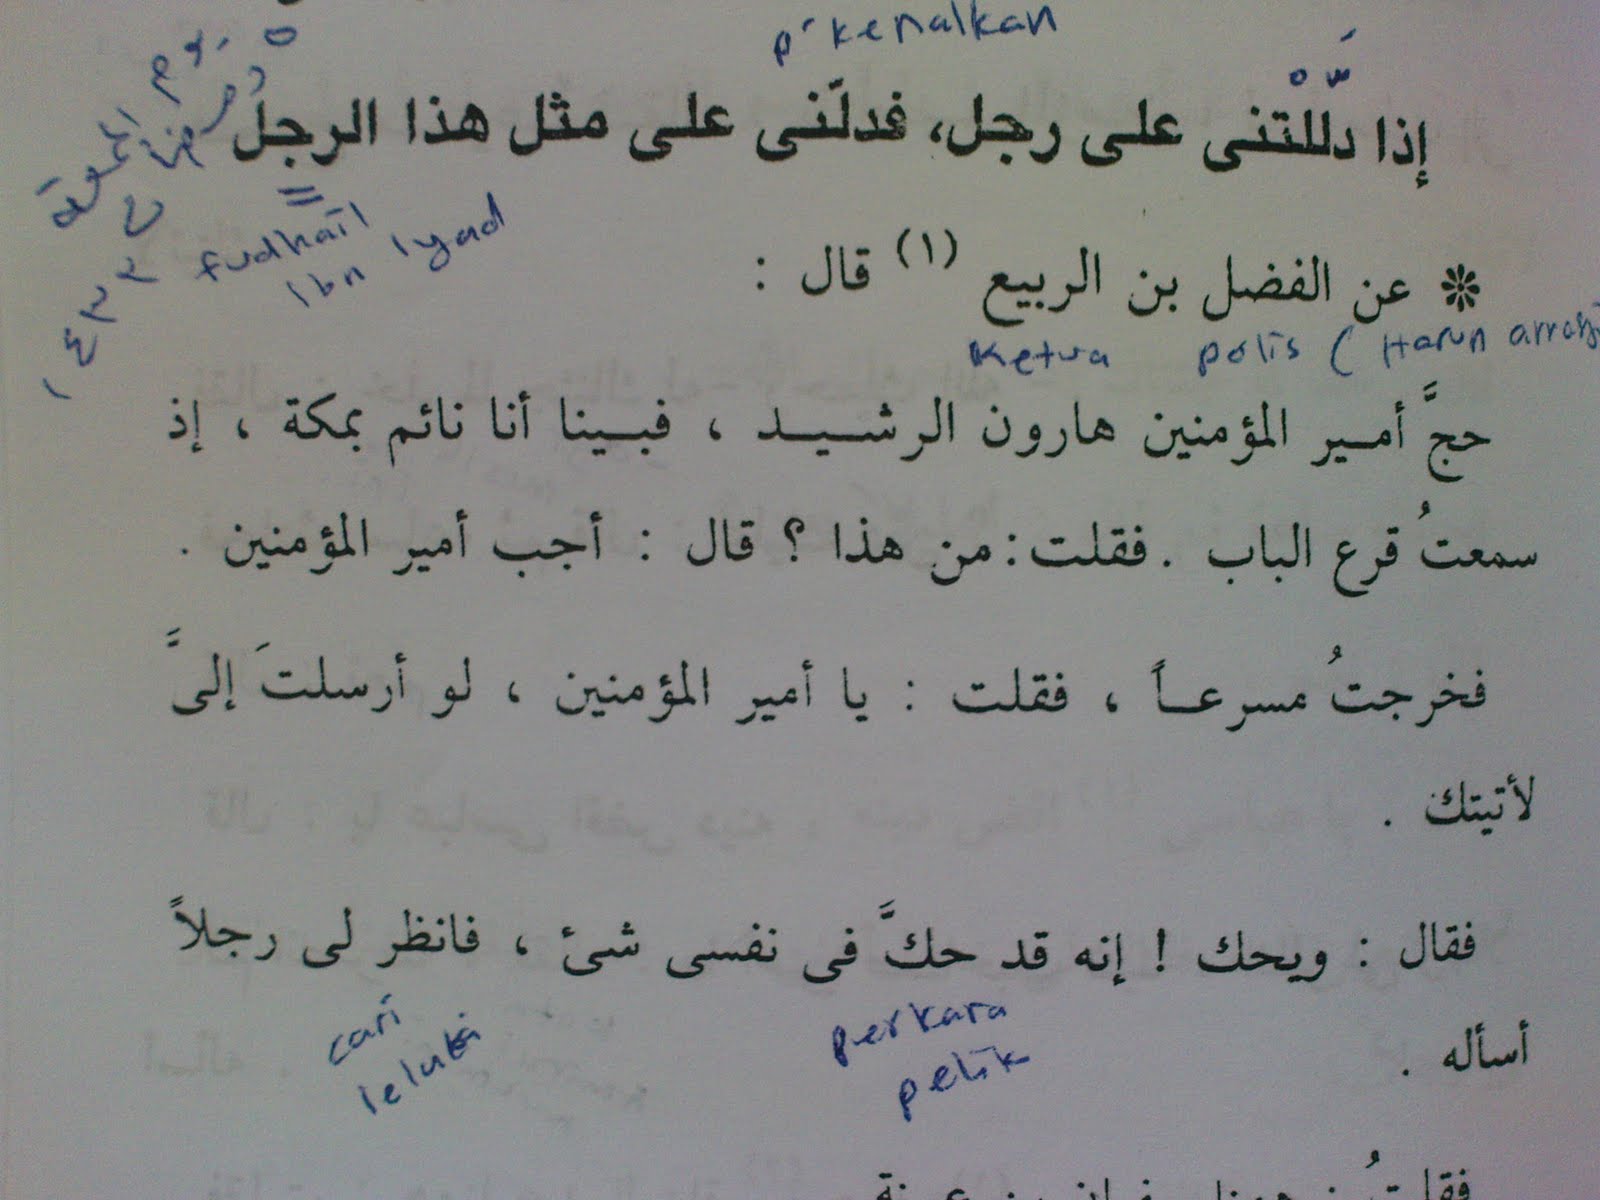 p'kenalkan
إذا دللْتنى على رجل، فدلّنى على مثل هذا الرجل
يوم الجمعة
١٤٣٢
fudhail
Ibn Iyad
❊ عن الفضل بن الربيع (١) قال :
Ketua polis ( Harun
حجَّ أمـير المؤمنين هارون الرشـيـد ، فبـينا أنا نائم بمكة ، إذ
سمعتُ قرع الباب . فقلت : من هذا ؟ قال : أجب أمير المؤمنين .
فخرجتُ مسرعـاً ، فقلت : يا أمير المؤمنين ، لو أرسلتَ إلىَّ
لأتيتك .
فقال : ويحك ! إنه قد حكَّ فى نفسى شئ ، فانظر لى رجلاً
cari
lelaki
perkara
pelik
أسأله .
فقلتُ :